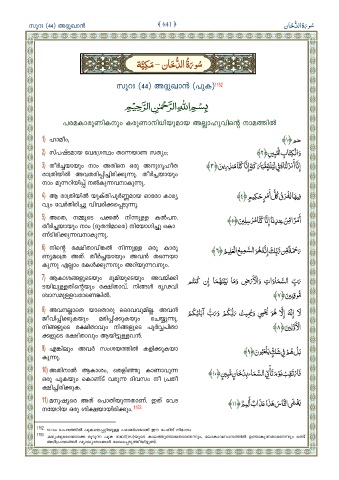 സൂറഃ (44) അദ്ദുഖാൻ
﴾ 641 ﴿
سُورَةُ الدُّخَان
سُورَةُ الدُّخَان - مَكِّيَّة
സൂറഃ (44) അദ്ദുഖാൻ (പുക)1152
بِسْمِ اللَّهِ الرَّحْمَٰنِ الرَّحِيمِ
പരമകാരുണികനും കരുണാനിധിയുമായ അല്ലാഹുവിന്റെ നാമത്തിൽ
1) ഹാമീം,
حم ﴿١﴾
2) സ്പഷ്ടമായ വേദഗ്രന്ഥം തന്നെയാണ സത്യം;
وَالْكِتَابِ الْمُبِينِ ﴿٢﴾
3) തീർച്ചയായും നാം അതിനെ ഒരു അനുഗൃഹീത
രാത്രിയിൽ അവതരിപ്പിച്ചിരിക്കുന്നു. തീർച്ചയായും
നാം മുന്നറിയിപ്പ് നൽകുന്നവനാകുന്നു.
إِنَّا أَنزَلْنَاهُ فِي لَيْلَةٍ مُّبَارَكَةٍ إِنَّا كُنَّا مُنذِرِينَ ﴿٣﴾
4) ആ രാത്രിയിൽ യുക്തിപൂർണ്ണമായ ഓരോ കാര്യ
വും വേർതിരിച്ചു വിവരിക്കപ്പെടുന്നു.
فِيهَا يُفْرَقُ كُلُّ أَمْرٍ حَكِيمٍ ﴿٤﴾
5) അതെ, നമ്മുടെ പക്കൽ നിന്നുള്ള കൽപന.
തീർച്ചയായും നാം (ദൂതന്മാരെ) നിയോഗിച്ചു കൊ
ണ്ടിരിക്കുന്നവനാകുന്നു.
أَمْرًا مِّنْ عِندِنَا إِنَّا كُنَّا مُرْسِلِينَ ﴿٥﴾
6) നിന്റെ രക്ഷിതാവിങ്കൽ നിന്നുള്ള ഒരു കാരു
ണ്യമത്രെ അത്. തീർച്ചയായും അവൻ തന്നെയാ
കുന്നു എല്ലാം കേൾക്കുന്നനും അറിയുന്നവനും.
رَحْمَةً مِّن رَّبِّكَ إِنَّهُ هُوَ السَّمِيعُ الْعَلِيمُ ﴿٦﴾
7) ആകാശങ്ങളുടെയും ഭൂമിയുടെയും അവയ്ക്കി
ടയിലുള്ളതിന്റെയും രക്ഷിതാവ്. നിങ്ങൾ ദൃഢവി
ശ്വാസമുള്ളവരാണെങ്കിൽ.
رَبِّ السَّمَاوَاتِ وَالْأَرْضِ وَمَا بَيْنَهُمَا إِن كُنتُم
مُّوقِنِينَ ﴿٧﴾
8) അവനല്ലാതെ യാതൊരു ദൈവവുമില്ല. അവൻ
ജീവിപ്പിക്കുകയും മരിപ്പിക്കുകയും ചെയ്യുന്നു.
നിങ്ങളുടെ രക്ഷിതാവും നിങ്ങളുടെ പൂർവ്വപിതാ
ക്കളുടെ രക്ഷിതാവും ആയിട്ടുള്ളവൻ.
لَا إِلَٰهَ إِلَّا هُوَ يُحْيِي وَيُمِيتُ رَبُّكُمْ وَرَبُّ آبَائِكُمُ
الْأَوَّلِينَ ﴿٨﴾
9) എങ്കിലും അവർ സംശയത്തിൽ കളിക്കുകയാ
കുന്നു.
بَلْ هُمْ فِي شَكٍّ يَلْعَبُونَ ﴿٩﴾
10) അതിനാൽ ആകാശം, തെളിഞ്ഞു കാണാവുന്ന
ഒരു പുകയും കൊണ്ട് വരുന്ന ദിവസം നീ പ്രതീ
ക്ഷിച്ചിരിക്കുക.
فَارْتَقِبْ يَوْمَ تَأْتِي السَّمَاءُ بِدُخَانٍ مُّبِينٍ ﴿١٠﴾
11) മനുഷ്യരെ അത് പൊതിയുന്നതാണ്. ഇത് വേദ
നയേറിയ ഒരു ശിക്ഷയായിരിക്കും.1153
يَغْشَى النَّاسَ هَٰذَا عَذَابٌ أَلِيمٌ ﴿١١﴾